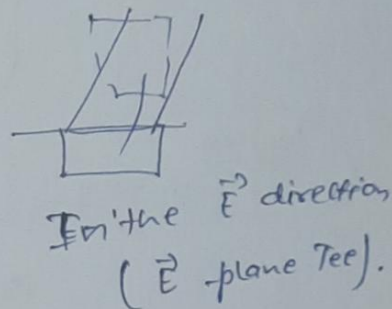 In the E⃗ direction
(E⃗ -plane Tee).